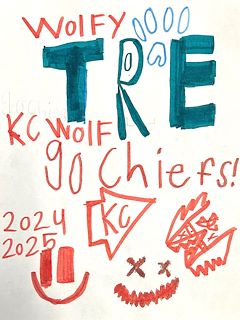 WOLFY
TRE
KC WOLF
go Chiefs!
KC
2024
2025